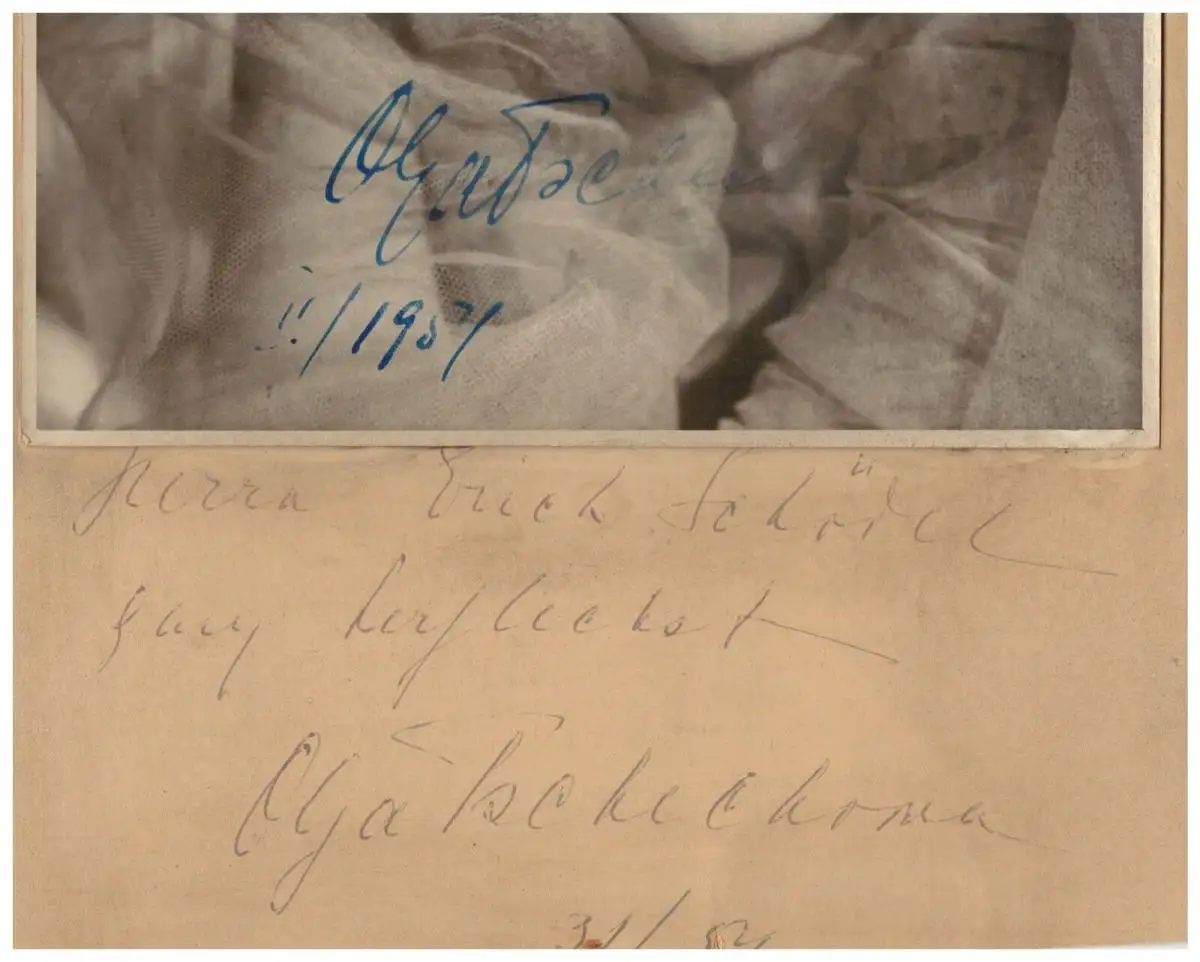 Olga Tschech
II/1954
Herrn Erich Schödel
ganz herzlichst
Olga Tschechowa